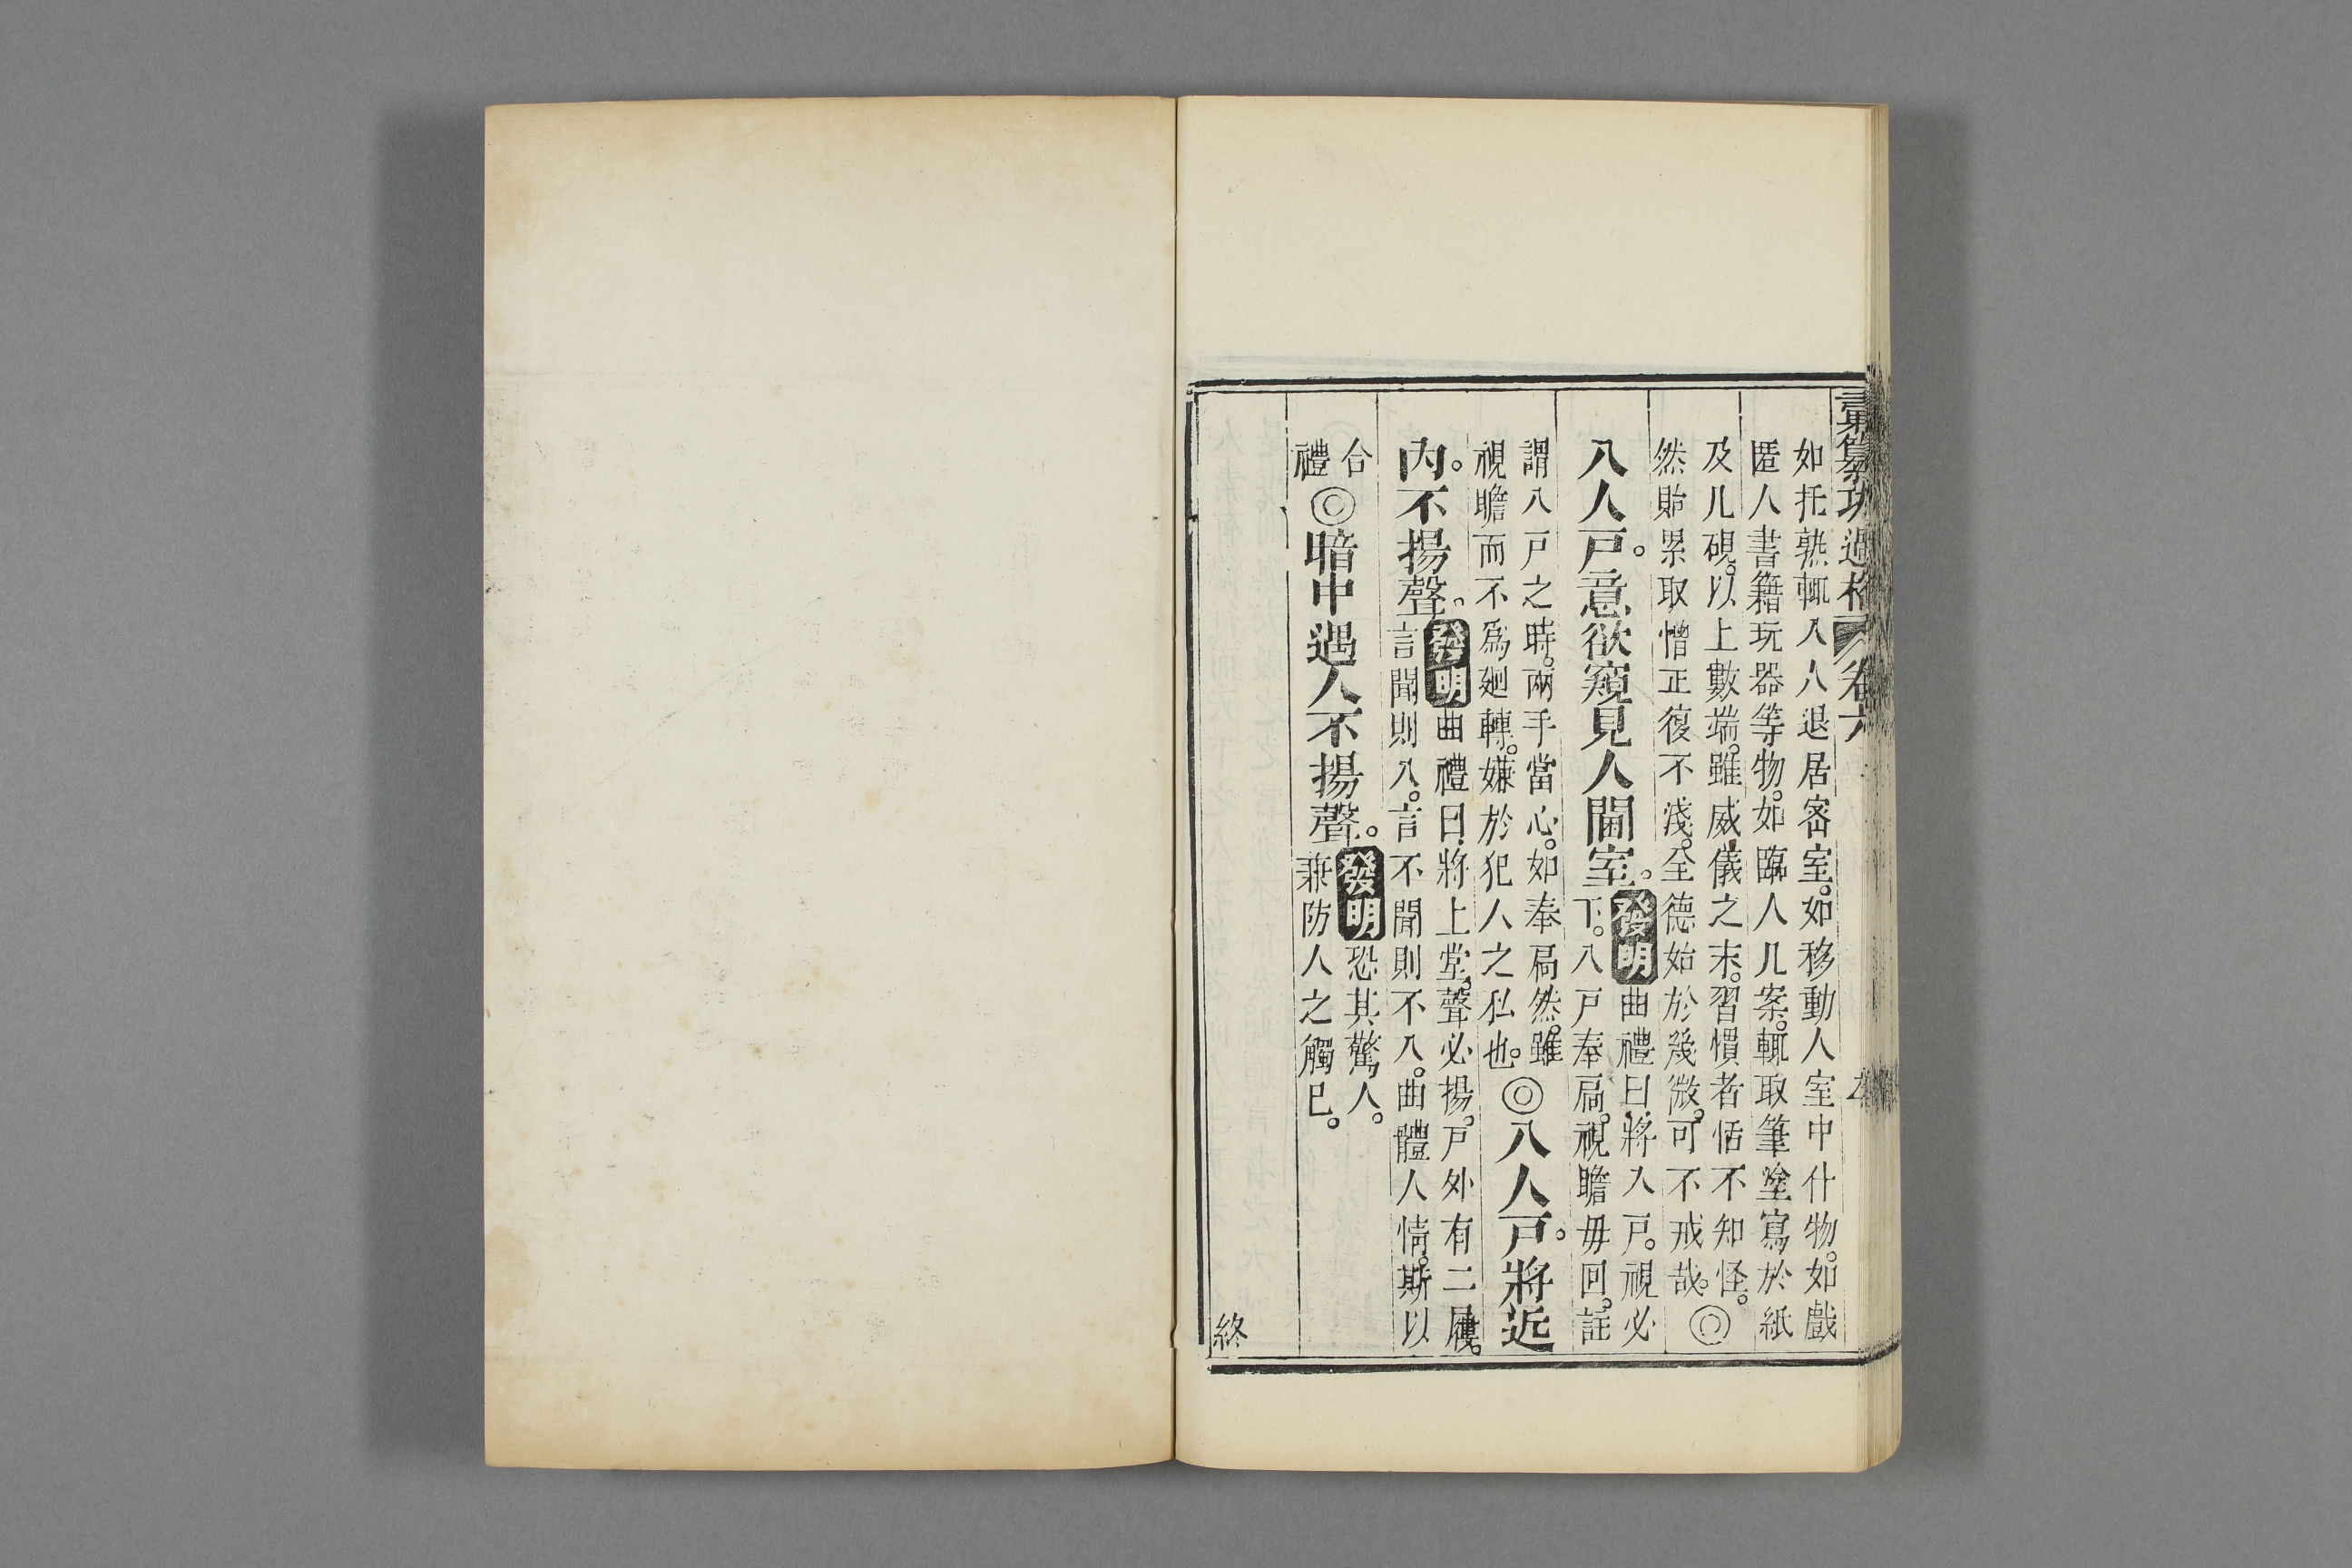 彙纂功過格 卷六
如托熟輒入人退居密室。如移動人室中什物。如戲
匿人書籍玩器等物。如臨人几案。輒取筆塗寫於紙
及几硯。以上數端。雖威儀之末。習慣者恬不知怪。
然貽累取憎正復不淺。全德始於幾微。可不戒哉。◎
入人戶。意欲窺見人闔室。發明曲禮曰。將入戶。視必
下。入戶奉扃。視瞻毋回。註
謂入戶之時。兩手當心。如奉扃然。雖
視瞻而不爲廻轉。嫌於犯人之私也。◎入人戶。將近
內。不揚聲。發明曲禮曰。將上堂。聲必揚。戶外有二屨。
言聞則入。言不聞則不入。曲體人情。斯以
合
禮◎暗中遇人不揚聲。發明恐其驚人。
兼防人之觸已。
終